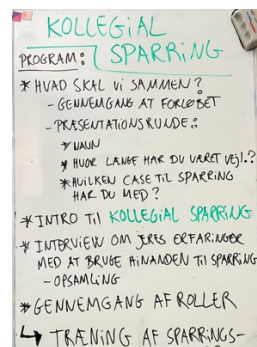 KOLLEGIAL
PROGRAM: SPARRING
* HVAD SKAL VI SAMMEN?
- GENNEMGANG AF FORLØBET
- PRÆSENTATIONSRUNDE:
* NAVN
* HVOR LÆNGE HAR DU VÆRET VEJL.?
* HVILKEN CASE TIL SPARRING
HAR DU MED?
* INTRO TIL KOLLEGIAL SPARRING
* INTERVIEW OM JERES ERFARINGER
MED AT BRUGE HINANDEN TIL SPARRING
- OPSAMLING
* GENNEMGANG AF ROLLER
↳ TRÆNING AF SPARRINGS-